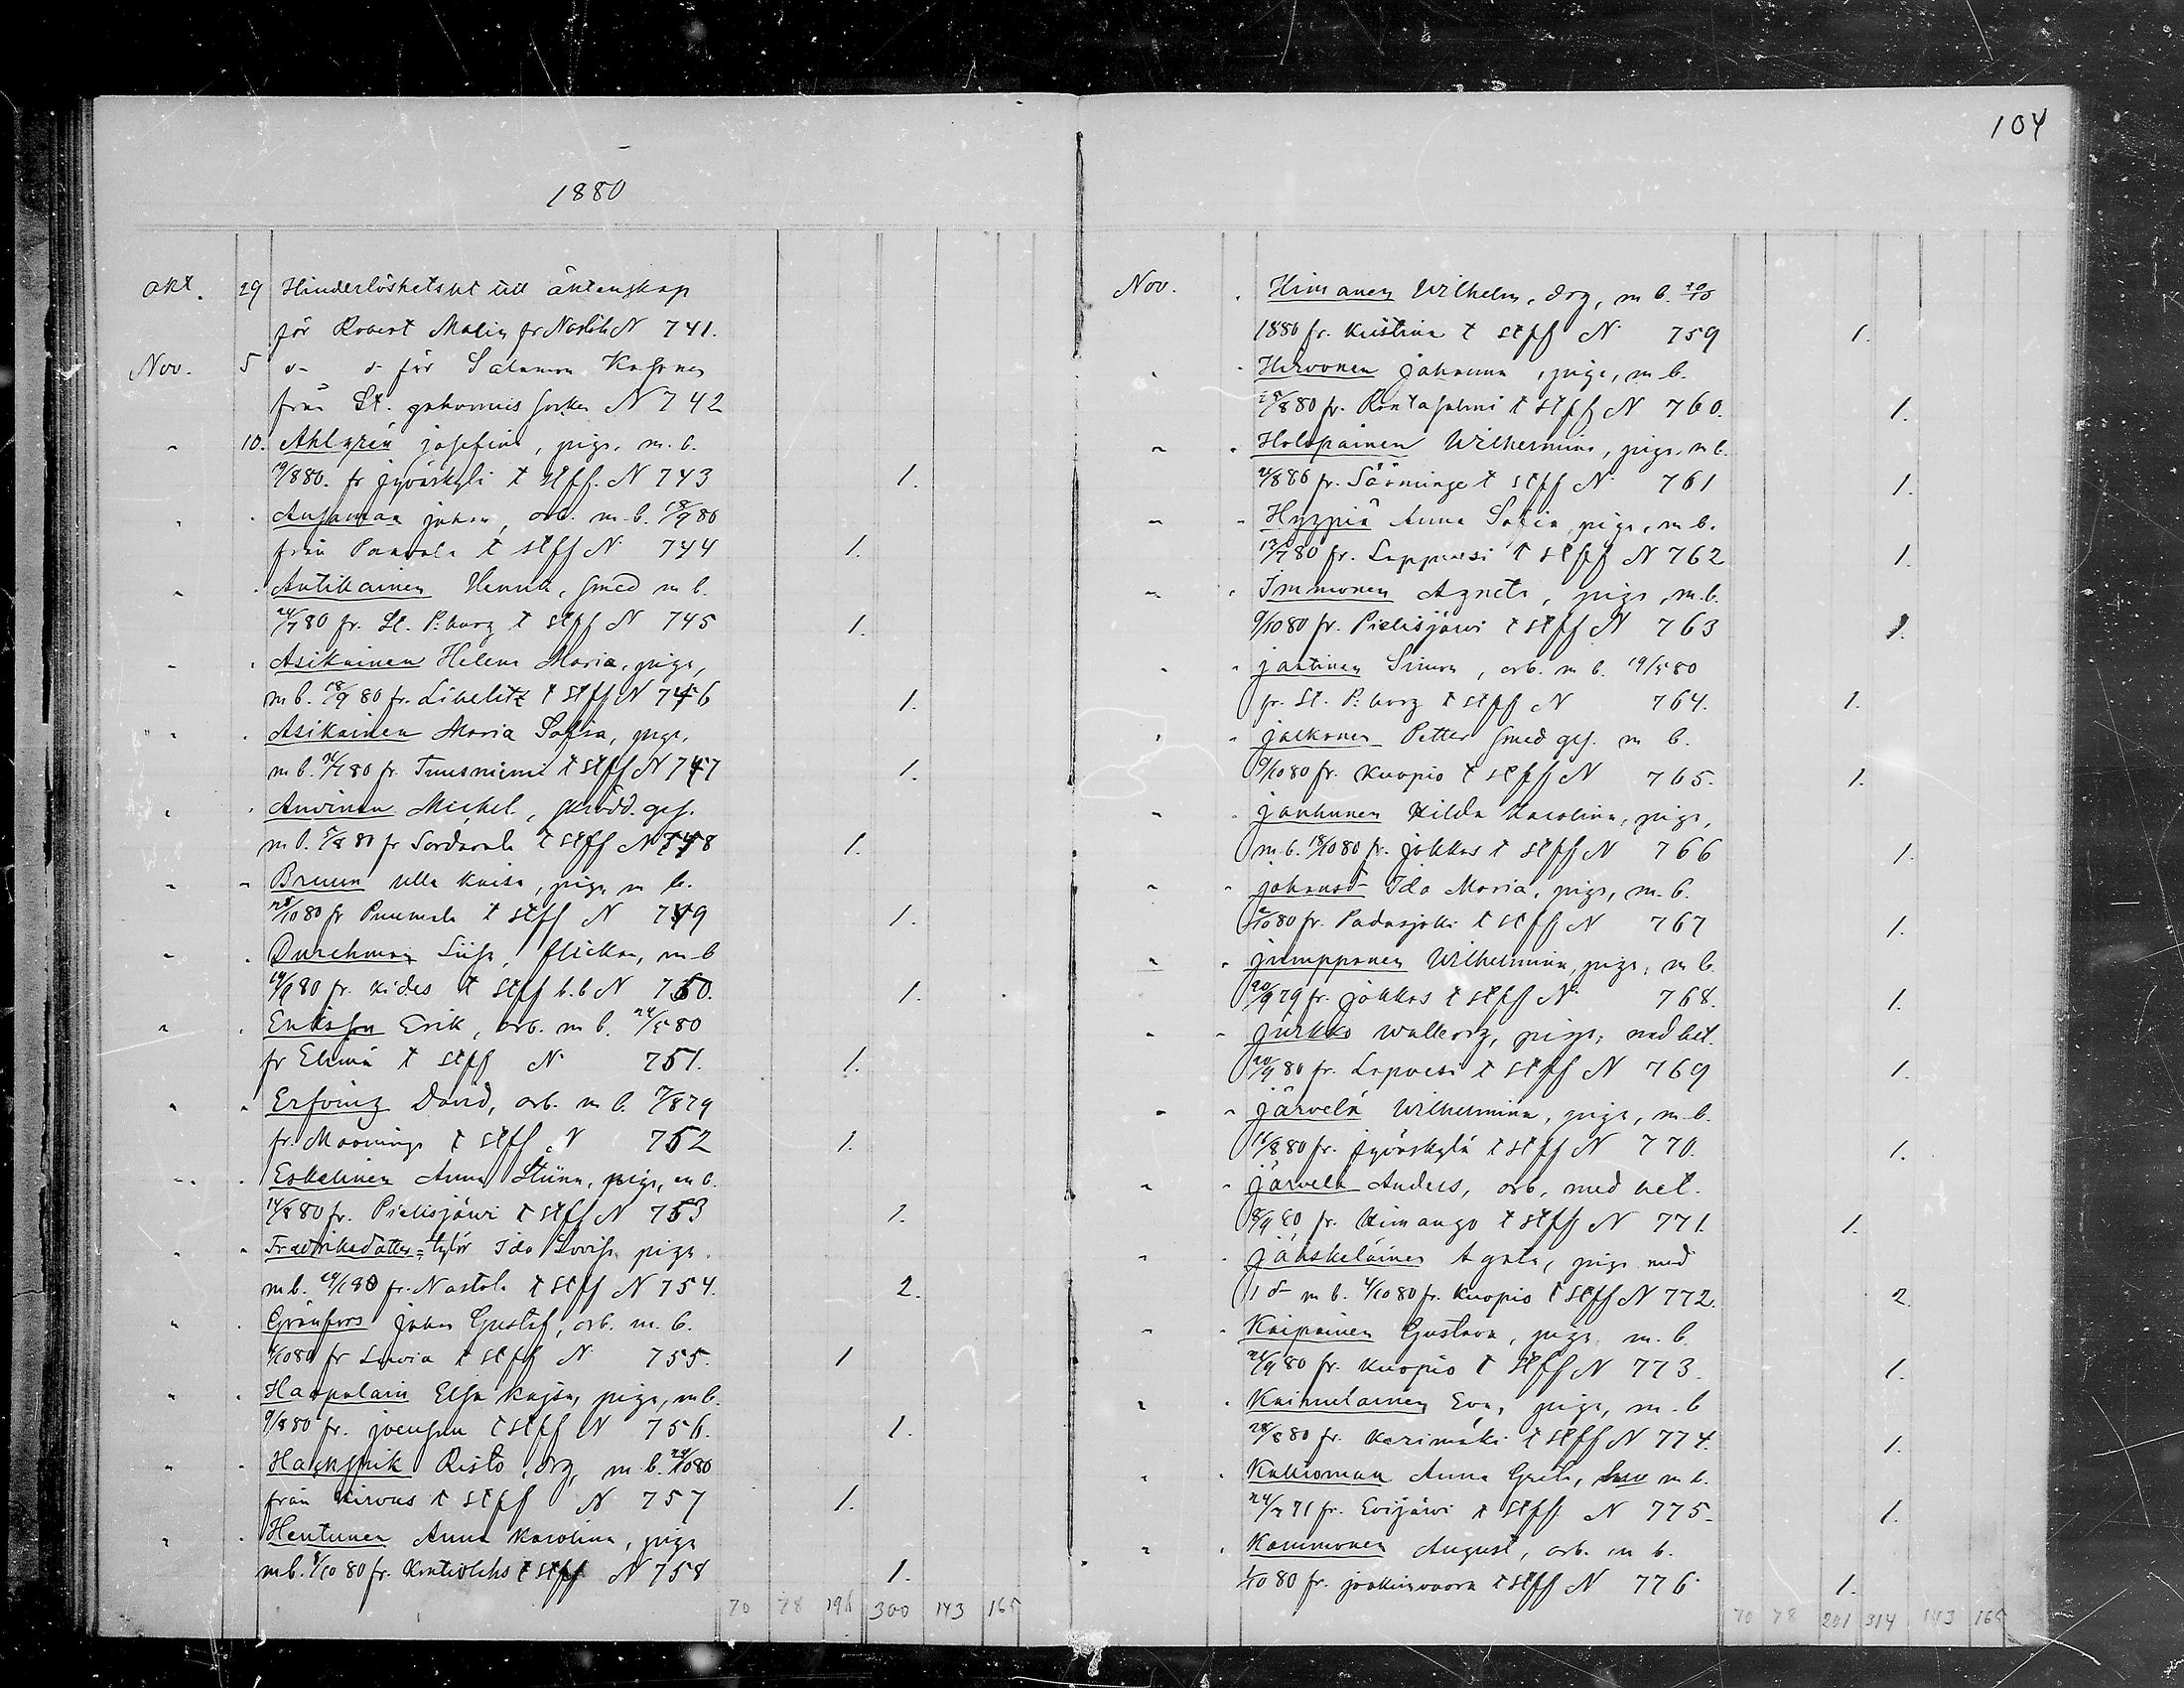 104
1880
Okt. 29 Hinderlöshetsbet till äktenskap
för Robert Malin fr Nastola N 741.
Nov. 5 d- d- för Salomon
från St. Johannis N 742
" 10. Ahlgren Josefina, piga, m. b.
19/8 80. fr Jyväskylä t stff. N 743 1.
" " Ansamaa Johan, arb. m. b. 18/9 80
från Paavola t stff N 744 1.
" " Antikainen Henrik, smed m b.
24/7 80 fr. St. P:burg t stff N 745 1.
" " Asikainen Helena Maria, piga,
m b. 18/9 80 fr. Libelitz t stff N 746 1.
" " Asikainen Maria Sofia, piga,
m b. 80 fr. Tuusniemi t stff N 747 1.
" " Auvinen Michel, skrädd. ges.
m b. 5/8 80 fr Sordavala t stff N 748 1.
" " Bruun Ulla Kaisa, piga m b.
25/10 80 fr Puumala t stff N 749 1.
" " Durchman flickan, m b
19/9 80 fr. Kides t stff b. b N 750. 1.
" " Eriksson Erik, arb. m b. 24/5 80
fr Elimä t stff N 751. 1.
" " Erfving David, arb. m b. 7/8 79
fr. t stff N 752 1.
" " Eskelinen Anna Stiina, piga, m b.
14/8 80 fr. Pielisjärvi t stff N 753 1.
" " Fredriksdotter Ida Lovisa piga.
m b. 80 fr. Nastola t stff N 754. 2.
" " Grönfors Johan Gustaf, arb. m. b.
80 fr Lovisa t stff N 755. 1
" " Haapalain Elsa Kajsa, piga, m b.
9/8 80 fr. Joensuu t stff N 756. 1.
" " Risto, drg, m b. 29/10 80
från Kirvus t stff N 757 1.
" " Hentunen Anna Karolina, piga
m b. 8/10 80 fr. Kontiolaks t stff N 758 1.
70 78 196 300 143 165
Nov. " Himanen Wilhelm, drg, m b. 20/10
1880 fr. Kristina t stff N 759 1.
" " Hirvonen Johanna, piga, m b.
28/8 80 fr. Rantasalmi t stff N 760. 1.
" " Holopainen Wilhelmina, piga, m b.
80 fr. Säominge t stff N 761 1.
" " Hyppiä Anna Sofia piga, m b.
13/7 80 fr. Lappvesi t stff N 762 1.
" " Immonen Agneta, piga, m. b.
9/10 80 fr. Pielisjärvi t stff N 763 1.
" " Jantinen Simon, arb. m b. 19/5 80
fr. St. P:burg t stff N 764. 1.
" " Jalkanen Petter smed ges. m b.
9/10 80 fr. Kuopio t stff N 765. 1.
" " Janhunen Hilda Karolina, piga,
m. b. 18/10 80 fr. Jokkas t stff N 766 1.
" " Johansd- Ida Maria, piga, m. b.
2/10 80 fr. Padasjoki t stff N 767 1.
" " Jumpponen Wilhelmina, piga, m b.
20/9 79 fr. Jokkas t stff N 768. 1.
" " Jurkko Walborg, piga, med bet.
20/9 80 fr. Lapvesi t stff N 769 1.
" " Järvelä Wilhelmina, piga, m b.
16/8 80 fr. Jyväskylä t stff N 770. 1.
" " Järvelä Anders, arb. med bet.
8/9 80 fr. Himango t stff N 771. 1.
" " Jääskeläinen Agata, piga med
1 d- m b. 4/10 80 fr. Kuopio t stff N 772. 2.
" " Kaipainen Gustava, piga m. b.
21/9 80 fr. Kuopio t stff N 773. 1.
" " Kaimulainen Eva, piga, m. b
28/8 80 fr. Kerimäki t stff N 774. 1.
" " Kallioman Anna Greta, m b.
24/7 71 fr. Evijärvi t stff N 775. 1.
" " Kammonen August, arb. m b.
1/10 80 fr. Jaakimvaara t stff N 776 1.
70 78 201 314 143 165